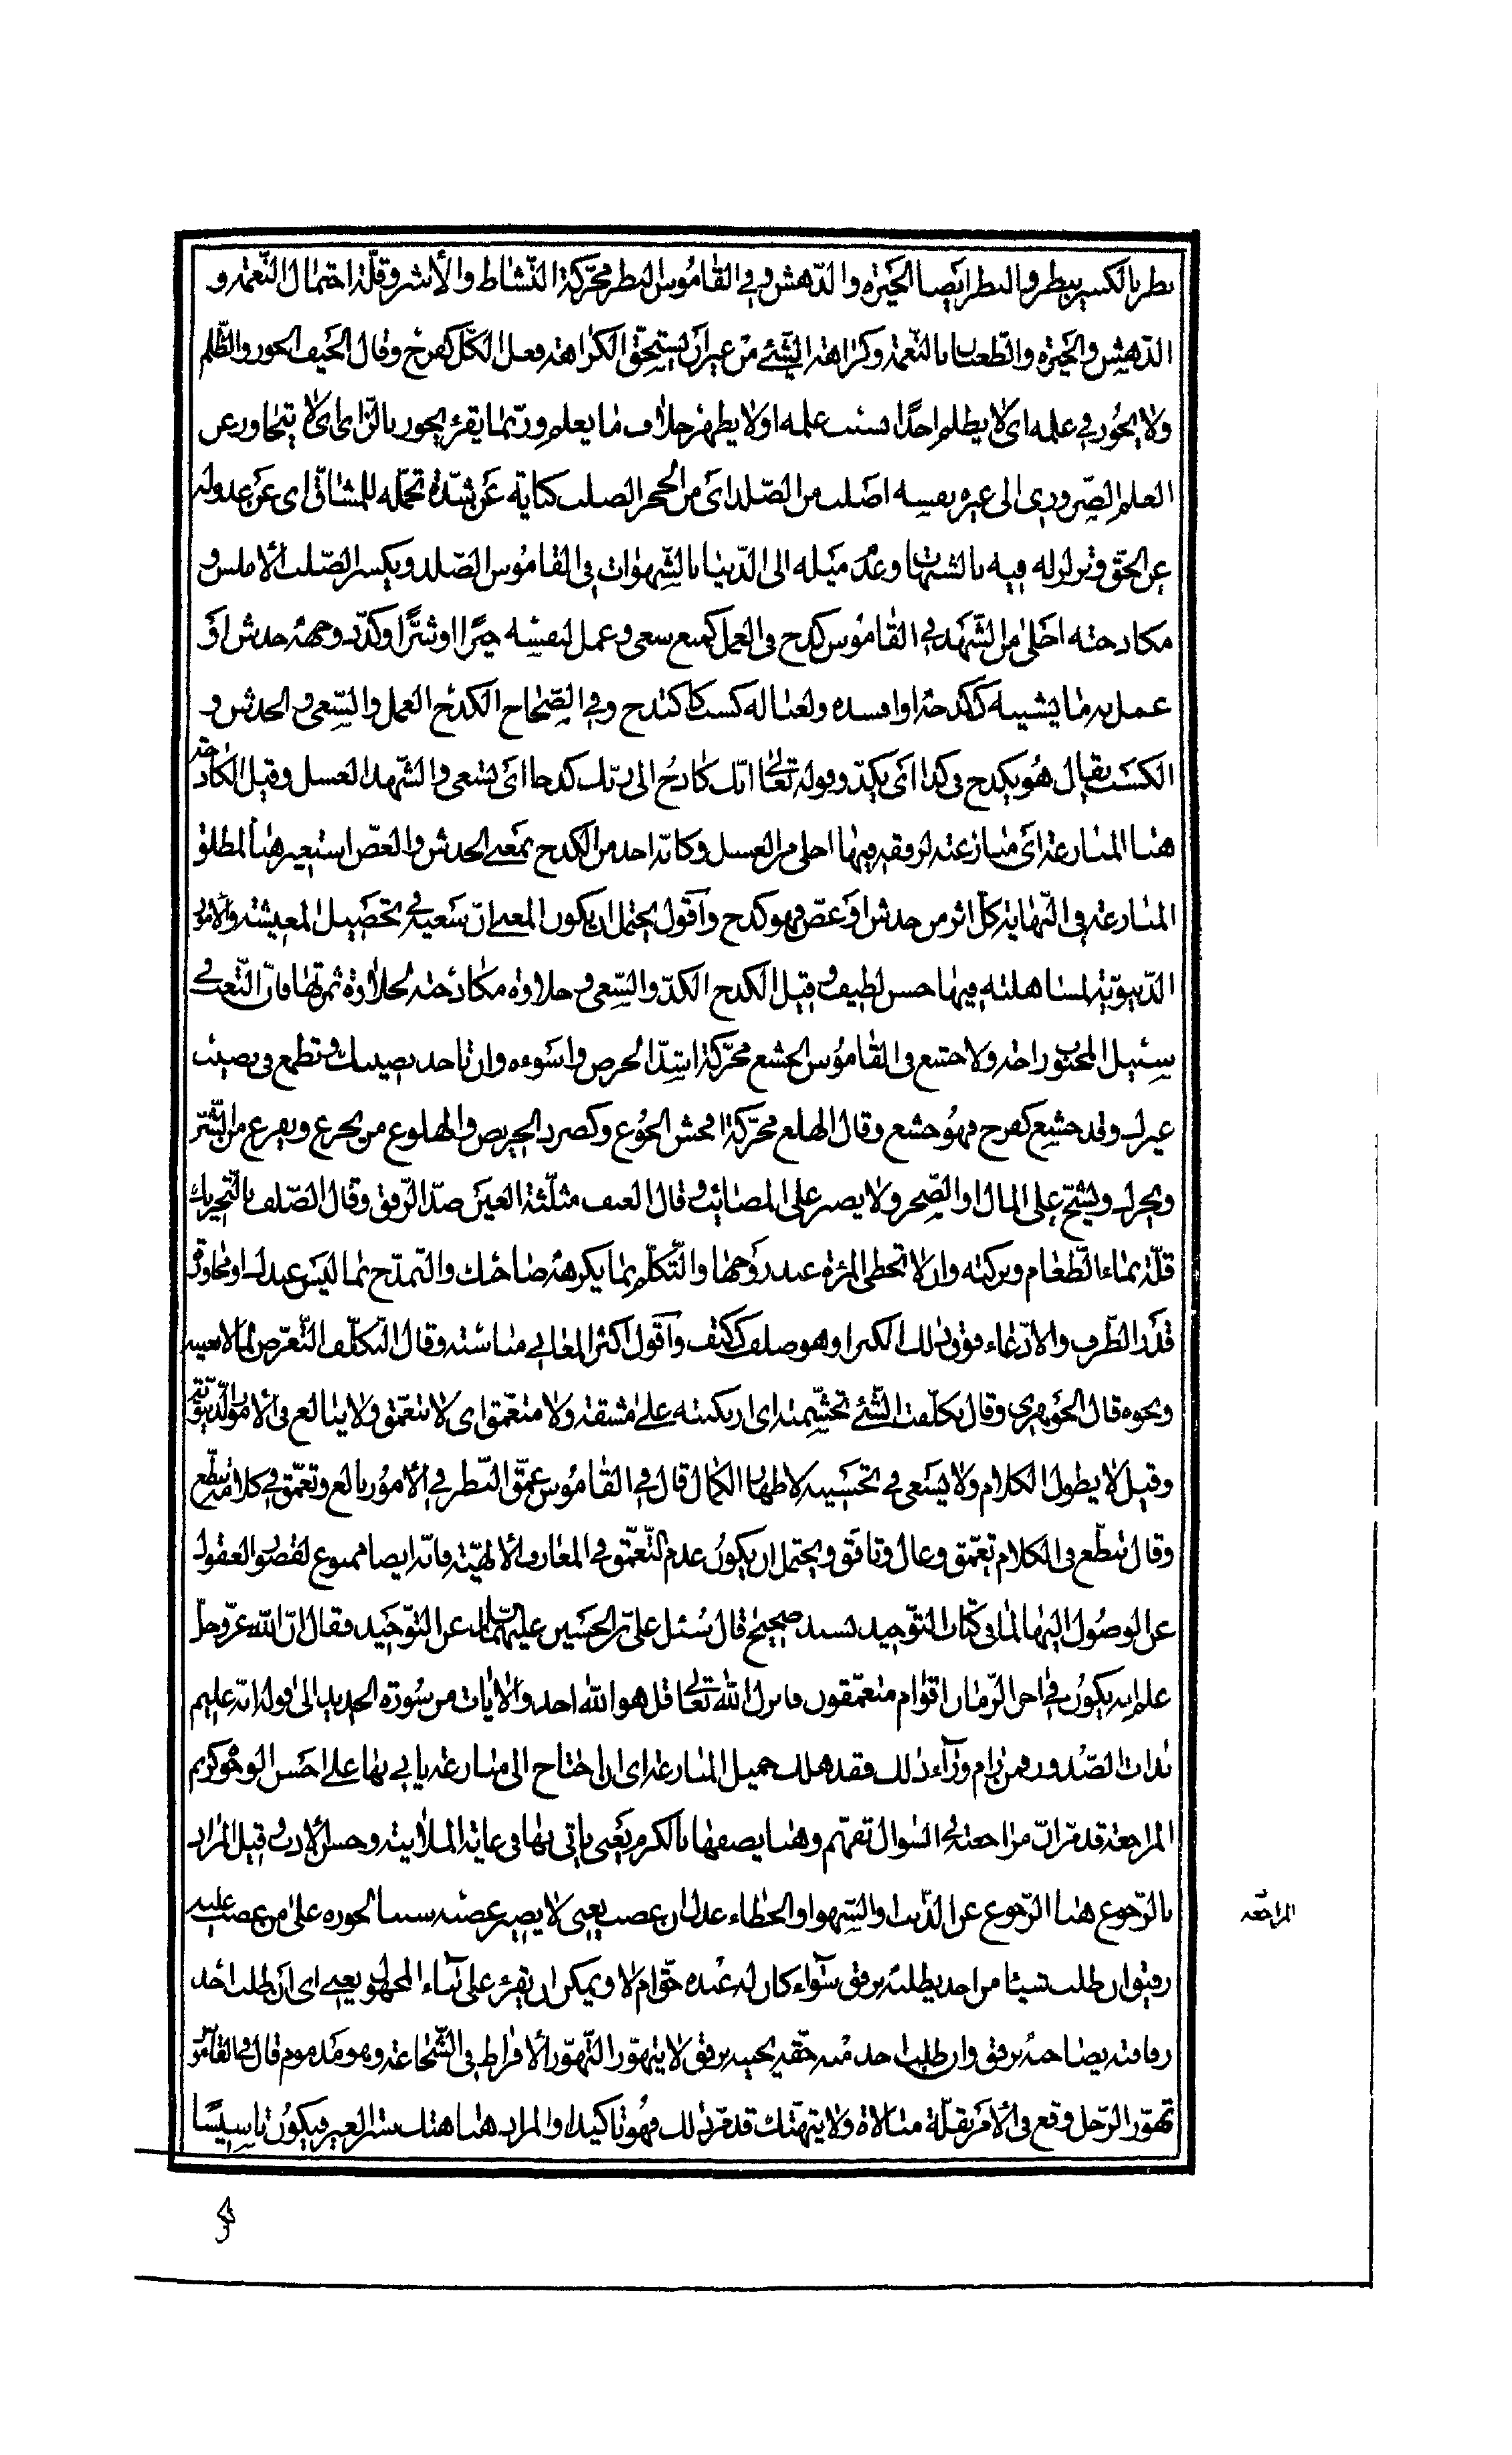 بطر بالكسر يبطر والبطر ايضا الحيرة والدّهش وفي القاموس البطر محرّكة النّشاط والأشر وقلّة احتمال النّعمة و
الدّهش والحيرة والطّغيان بالنّعمة وكراهة الشّئ من غير أن يستحقّ الكراهة فعل الكلّ كفرح وقال الحيف الجور والظّلم
ولا يجور في علمه اى لا يظلم احدًا بسبب علمه او لا يظهر خلاف ما يعلم وربّما يقرء يجوز بالزّاى اى لا يتجاوز عن
العلم الضّروري الى غيره نفسه اصلب من الصّلد اى من الحجر الصلب كناية عن شدّة تحمّله للمشاقّ او عن عدوله
عن الحقّ وتزلزله فيه بالشبهات وعدم ميله الى الدّنيا بالشّهوات في القاموس الصّلد ويكسر الصّلب الأملس و
مكادحته احلى من الشّهد في القاموس كدح في العمل كمنع سعى وعمل لنفسه خيرًا او شرًّا وكدّ ووجهه خدش او
عمل به ما يشينه ككدحه او افسده ولعياله كسب كاكتدح وفي الصّحاح الكدح العمل والسّعى والخدش و
الكسب يقال هو يكدح في كذا اى يكدّ وقوله تعالى انّك كادح الى ربّك كدحا اى تسعى والشّهد العسل وقيل الكادحة
هنا المنازعة اى منازعته لرفقه فيها احلى من العسل وكانّه اخذ من الكدح بمعنى الخدش والعضّ استعير هنا لمطلق
المنازعة في النّهاية كلّ اثر من خدش او عضّ فهو كدح وأقول يحتمل ان يكون المعنى انّ سعيه في تحصيل المعيشة والأمور
الدّنيويّة لمساهلته فيها حسن لطيف وقيل الكدح الكدّ والسّعى وحلاوة مكادحته لحلاوة ثمرتها فانّ التّعب في
سبيل المحبوب راحة ولا جشع في القاموس الجشع محرّكة اشدّ الحرص واسوءه وان تاخذ نصيبك وتطمع في نصيب
غيرك وقد جشع كفرح فهو جشع وقال الهلع محرّكة افحش الجوع وكصرد الحريص والهلوع من يجزع ويفزع من الشّرّ
ويحرص ويشحّ على المال او الضّجر ولا يصبر على المصائب وقال العنف مثلّثة العين ضدّ الرّفق وقال الصّلف بالتّحريك
قلّة نماء الطّعام وبركته وان لا تحظى المرءة عند زوجها والتّكلّم بما يكرهه صاحبك والتّمدّح بما ليس عندك او مجاوزة
قدر الظّرف والادّعاء فوق ذلك تكبرا وهو صلف ككتف وأقول اكثر المعاني مناسبة وقال التّكلّف التّعرّض لما لا يعنيه
ونحوه قال الجوهري وقال تكلّفت الشّئ تجشّمته اى ارتكبته على مشقة ولا متعمّق اى لا يتعمّق ولا يبالغ في الأمور الدّنيويّة
وقيل لا يطول الكلام ولا يسعى في تحسينه لاظهار الكمال قال في القاموس عمّق النّظر في الأمور بالغ وتعمّق في كلامه تنطّع
وقال تنطّع في الكلام تعمّق وغال وتأنّق ويحتمل ان يكون عدم التّعمّق في المعارف الالهيّة فانّه ايضا ممنوع لقصور العقول
عن الوصول اليها لما في كتاب التّوحيد بسند صحيح قال سئل علىّ بن الحسين عليهما السلام عن التّوحيد فقال انّ الله عزّ وجلّ
علم انّه يكون في اخر الزّمان اقوام متعمّقون فانزل الله تعالى قل هو الله احد والايات من سورة الحديد الى قوله انّه عليم
بذات الصّدور فمن رام ورآء ذلك فقد هلك جميل المنازعة اى ان احتاج الى منازعة ياتي بها على احسن الوجوه كريم
المراجعة قد مرّ انّ مراجعته في السّوال تفهّم وهنا يصفها بالكرم يعنى ياتى بها في غاية الملاينة وحسن الادب وقيل المراد
بالرّجوع هنا الرّجوع عن الذّنب او السّهو او الخطاء عدل ان غضب يعنى لا يصير غضبه سببا لجوره على من غضب عليه
رفيق ان طلب شيئا من احد يطلبه برفق سوآء كان له عنده حقّ ام لا ويمكن ان يقرء على بناء المجهول يعنى اى ان طلب احد
رفاقته يصاحبه برفق وان طلب احد منه حقّه يجيبه برفق لا يتهوّر التّهوّر الافراط في الشّجاعة وهو مذموم قال في القاموس
تهوّر الرّجل وقع في الأمر بقلّة مبالاة ولا يتهتّك قد مرّ ذلك فهو تاكيد او المراد هنا هتك ستر الغير فيكون تاسيسًا
المراجعة